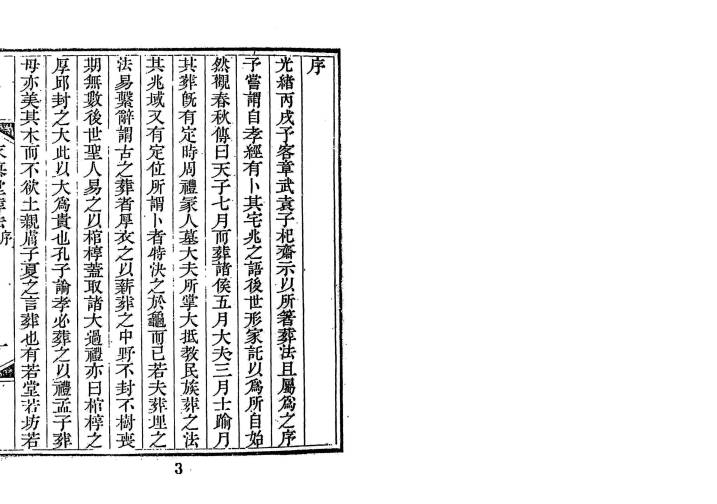 序
光緒丙戌予客章武袁子杞齋示以所著葬法且屬爲之序
予嘗謂自孝經有卜其宅兆之語後世形家託以爲所自始
然觀春秋傳曰天子七月而葬諸侯五月大夫三月士踰月
其葬旣有定時周禮冢人墓大夫所掌大抵敎民族葬之法
其兆域又有定位所謂卜者特決之於龜而已若夫葬埋之
法易繫辭謂古之葬者厚衣之以薪葬之中野不封不樹喪
期無數後世聖人易之以棺椁蓋取諸大過禮亦曰棺椁之
厚邱封之大此以大爲貴也孔子論孝必葬之以禮孟子葬
母亦美其木而不欲土親膚子夏之言葬也有若堂若坊若
序
3